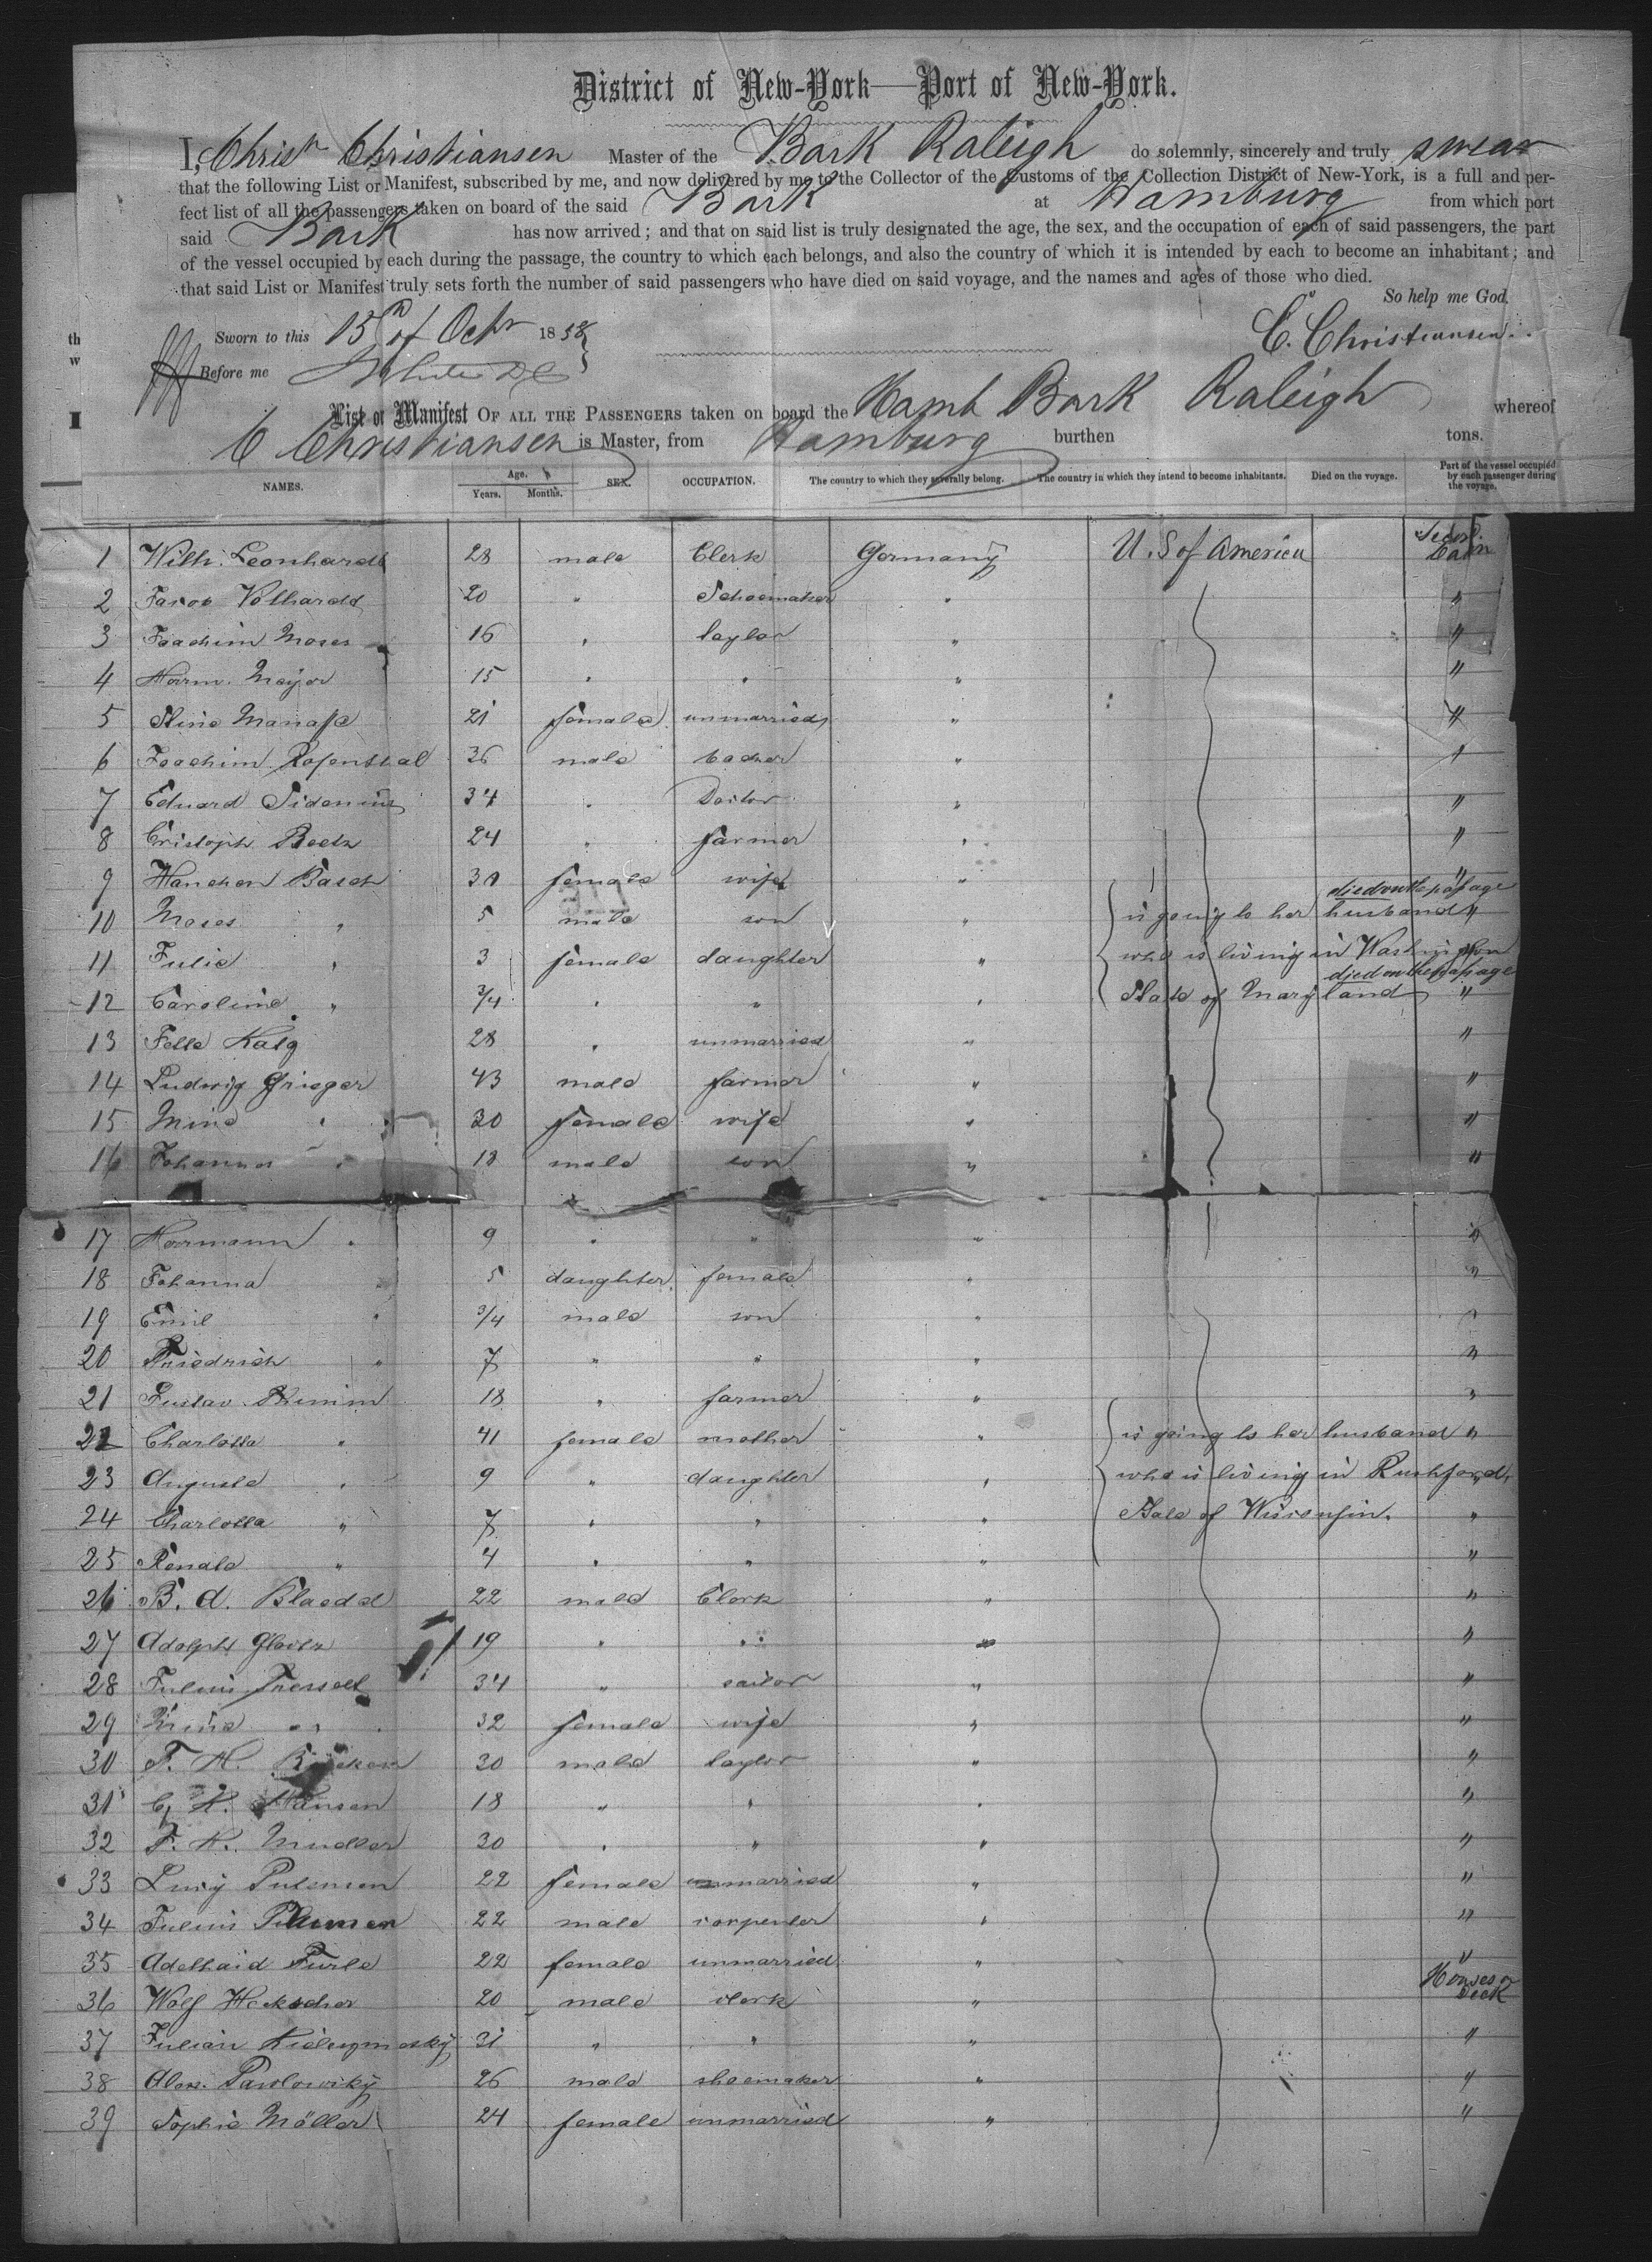 District of New-York—Port of New-York.
I, Christn Christiansen Master of the Bark Raleigh do solemnly, sincerely and truly swear
that the following List or Manifest, subscribed by me, and now delivered by me to the Collector of the Customs of the Collection District of New-York, is a full and per-
fect list of all the passengers taken on board of the said Bark at Hamburg from which port
said Bark has now arrived; and that on said list is truly designated the age, the sex, and the occupation of each of said passengers, the part
of the vessel occupied by each during the passage, the country to which each belongs, and also the country of which it is intended by each to become an inhabitant; and
that said List or Manifest truly sets forth the number of said passengers who have died on said voyage, and the names and ages of those who died.
So help me God.
th
Sworn to this 15th of Octr 1858 C. Christiansen.
w
Before me
List or Manifest OF ALL THE PASSENGERS taken on board the Hamb Bark Raleigh whereof
C Christiansen is Master, from Hamburg burthen tons.
NAMES. Age. Years. Months. SEX. OCCUPATION. The country to which they severally belong. The country in which they intend to become inhabitants. Died on the voyage. Part of the vessel occupied by each passenger during the voyage.
1 Wilh. Leonhardt 28 male Clerk Germany U. S of America
2 Jacob Volhardt 20 " Schoemaker " "
3 Joachim Moses 16 " taylor " "
4 Herm. Meyer 15 " " " "
5 Stine Manasse 21 female unmarried " "
6 Joachim Rosenthal 36 male "
7 Eduard Sidenius 34 " Doctor " "
8 Cristoph Beetz 24 " farmer " "
9 Hanchen Basch 30 female wife " "
died on the passage
10 Moses " 5 male son " is going to her husband "
11 Julie " 3 female daughter " who is living in Washington
died on the passage
12 Caroline " 3/4 " " " State of Maryland "
13 28 " unmarried " "
14 Ludwig Grieger 43 male farmer " "
15 Mine " 30 female wife " "
16 Johannes " 18 male son " "
17 Hermann " 9 " " " "
18 Johanna " 5 daughter female " "
19 Emil " 3/4 male son " "
20 Friedrich " 7 " " " "
21 Gustav 18 " farmer " "
22 Charlotte " 41 female mother " is going to her husband "
23 Auguste " 9 " daughter " who is living in Rushford,
24 Charlotta " 7 " " " State of Wisconsin. "
25 Renate " 4 " " " "
26 B. A. 22 male Clerk " "
27 Adolph 19 " " " "
28 Julius 34 " sailor " "
29 Mina " 32 female wife " "
30 J. H. 30 male taylor " "
31 H. Hansen 18 " " " "
32 J. H. Mueller 30 " " " "
33 22 female unmarried " "
34 Julius 22 male carpenter " "
35 Adelhaid 22 female unmarried " "
36 Wolf Heckscher 20 male clerk " Houses on Deck
37 Julian 31 " " " "
38 Alex. Pawlowsky 26 male shoemaker " "
39 Sophie Möller 24 female unmarried " "